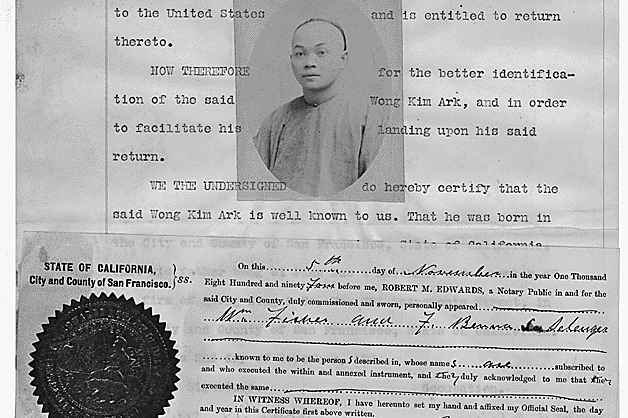 to the United States and is entitled to return
thereto.
NOW THEREFORE for the better identifica-
tion of the said Wong Kim Ark, and in order
to facilitate his landing upon his said
return.
WE THE UNDERSIGNED do hereby certify that the
said Wong Kim Ark is well known to us. That he was born in
the City and County of San Francisco, State of California,
STATE OF CALIFORNIA,
City and County of San Francisco. } ss.
On this 5th day of November in the year One Thousand
Eight Hundred and ninety Four before me, ROBERT M. EDWARDS, a Notary Public in and for the
said City and County, duly commissioned and sworn, personally appeared
Wm Fisher and F. Benna
known to me to be the person s described in, whose name s are subscribed to
and who executed the within and annexed instrument, and they duly acknowledged to me that they
executed the same
IN WITNESS WHEREOF, I have hereunto set my hand and affixed my Official Seal, the day
and year in this Certificate first above written.